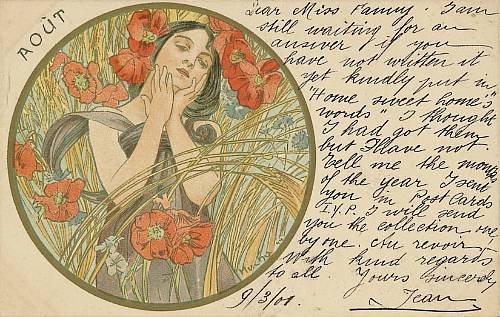 AOÛT
Dear Miss Fanny. I am
still waiting for an
answer if you
have not written it
yet kindly put in
"Home sweet home's
words". I thought
I had got them
but I have not.
Tell me the months
of the year I sent
you in Post Cards
I.Y.P. I will send
you the collection one
by one. Au revoir.
With kind regards
to all. Yours sincerely
Jean
9/3/00.
Mucha